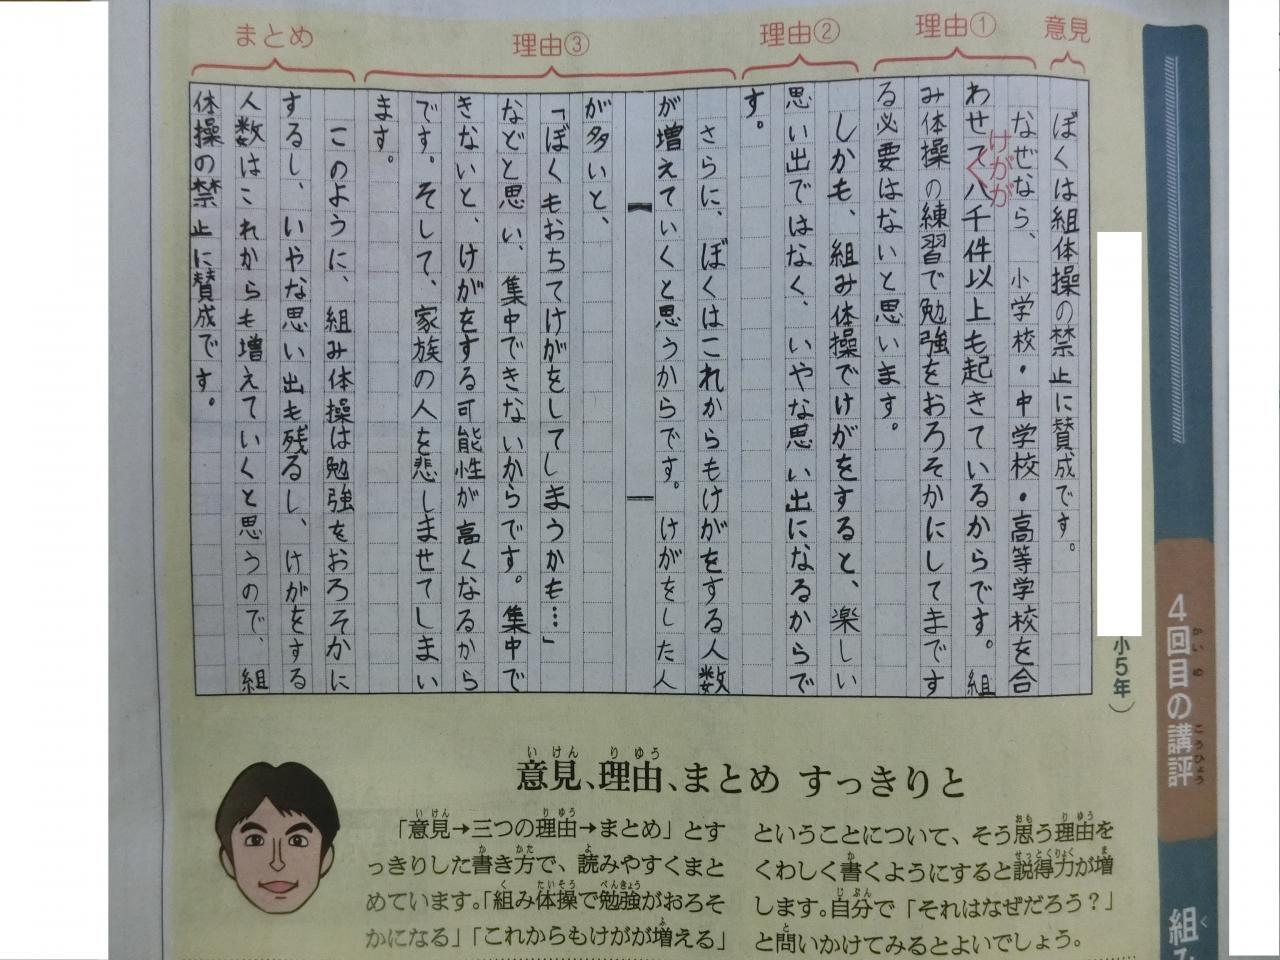 意見
理由①
理由②
理由③
まとめ
ぼくは組体操の禁止に賛成です。
なぜなら、小学校・中学校・高等学校を合
わせて八千件以上も起きているからです。組
けがが
み体操の練習で勉強をおろそかにしてまです
る必要はないと思います。
しかも、組み体操でけがをすると、楽しい
思い出ではなく、いやな思い出になるからで
す。
さらに、ぼくはこれからもけがをする人数
が増えていくと思うからです。けがをした人
が多いと、
「ぼくもおちてけがをしてしまうかも…」
などと思い、集中できないからです。集中で
きないと、けがをする可能性が高くなるから
です。そして、家族の人を悲しませてしまい
ます。
このように、組み体操は勉強をおろそかに
するし、いやな思い出も残るし、けがをする
人数はこれからも増えていくと思うので、組
体操の禁止に賛成です。
小5年)
4回目の講評
組み
意見、理由、まとめ すっきりと
「意見→三つの理由→まとめ」とす
っきりした書き方で、読みやすくまと
めています。「組み体操で勉強がおろそ
かになる」「これからもけがが増える」
ということについて、そう思う理由を
くわしく書くようにすると説得力が増
します。自分で「それはなぜだろう？」
と問いかけてみるとよいでしょう。